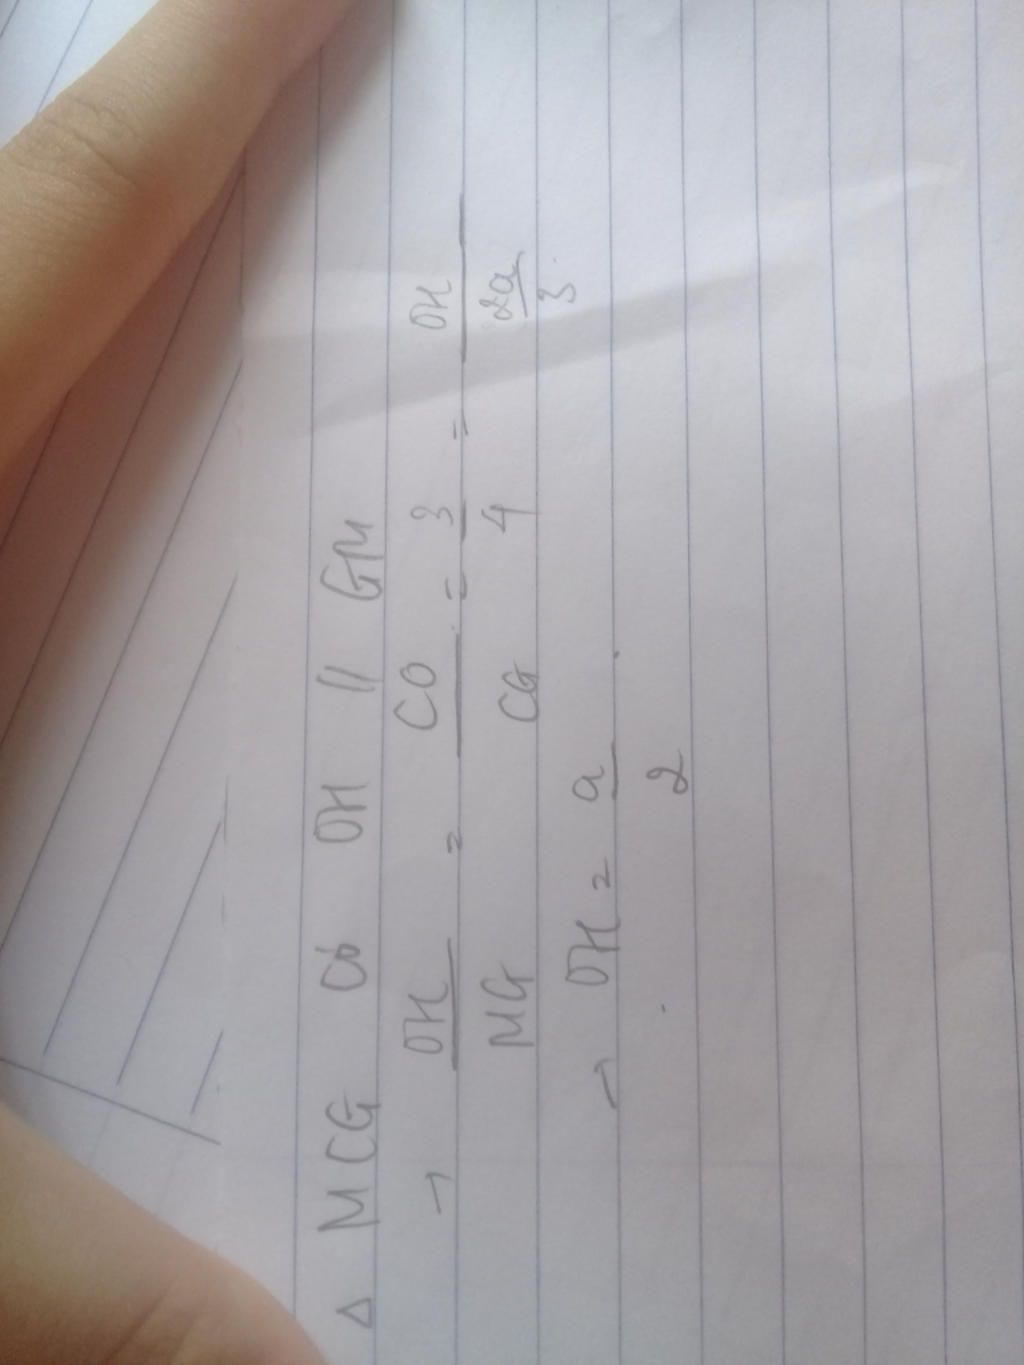 Δ MCG có OH // GM
→ OH/MG = CO/CG = 3/4 = OH/(2a/3)
→ OH = a/2